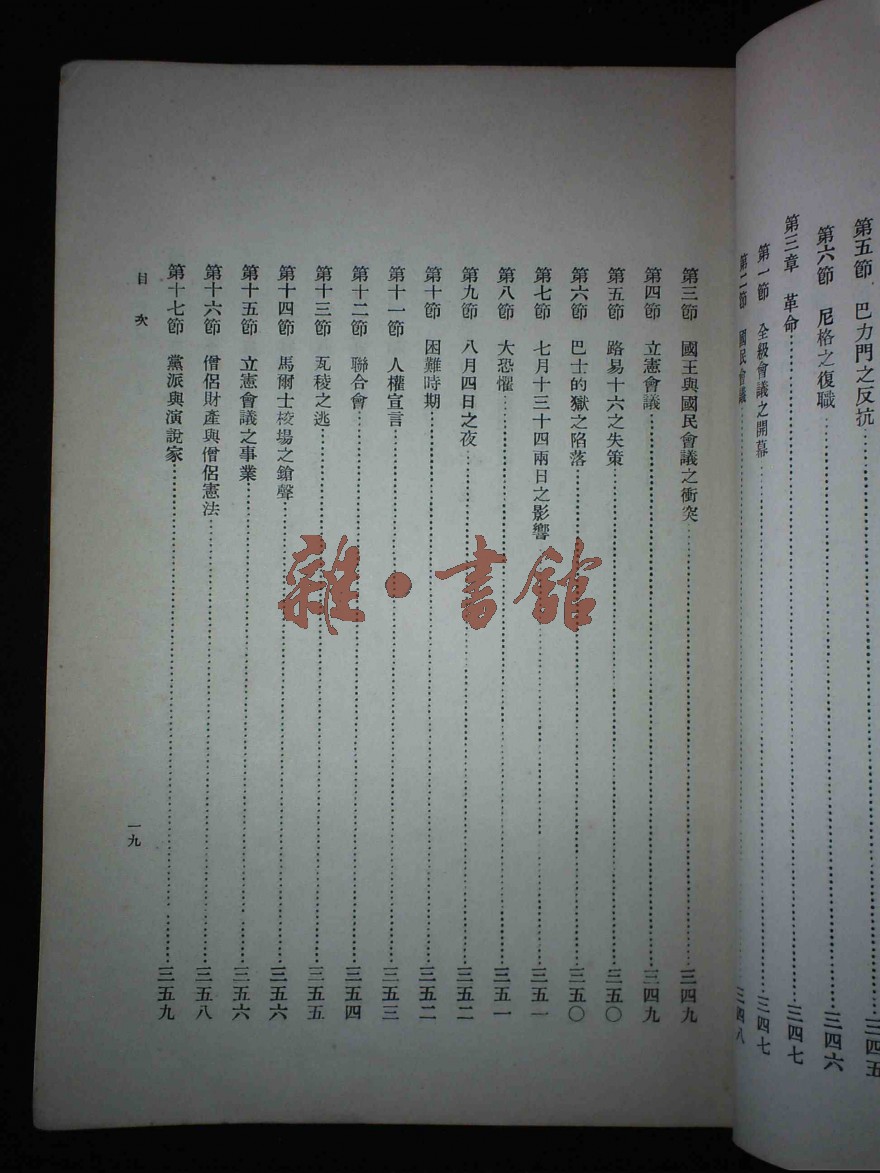 第五節　巴力門之反抗……三四五
第六節　尼格之復職……三四六
第三章　革命……三四七
第一節　全級會議之開幕……三四七
第二節　國民會議……三四八
第三節　國王與國民會議之衝突……三四九
第四節　立憲會議……三四九
第五節　路易十六之失策……三五〇
第六節　巴士的獄之陷落……三五〇
第七節　七月十三十四兩日之影響……三五一
第八節　大恐懼……三五一
第九節　八月四日之夜……三五二
第十節　困難時期……三五二
第十一節　人權宣言……三五三
第十二節　聯合會……三五四
第十三節　瓦稜之逃……三五五
第十四節　馬爾士校場之鎗聲……三五六
第十五節　立憲會議之事業……三五六
第十六節　僧侶財產與僧侶憲法……三五八
第十七節　黨派與演說家……三五九
目次
一九
雜·書館